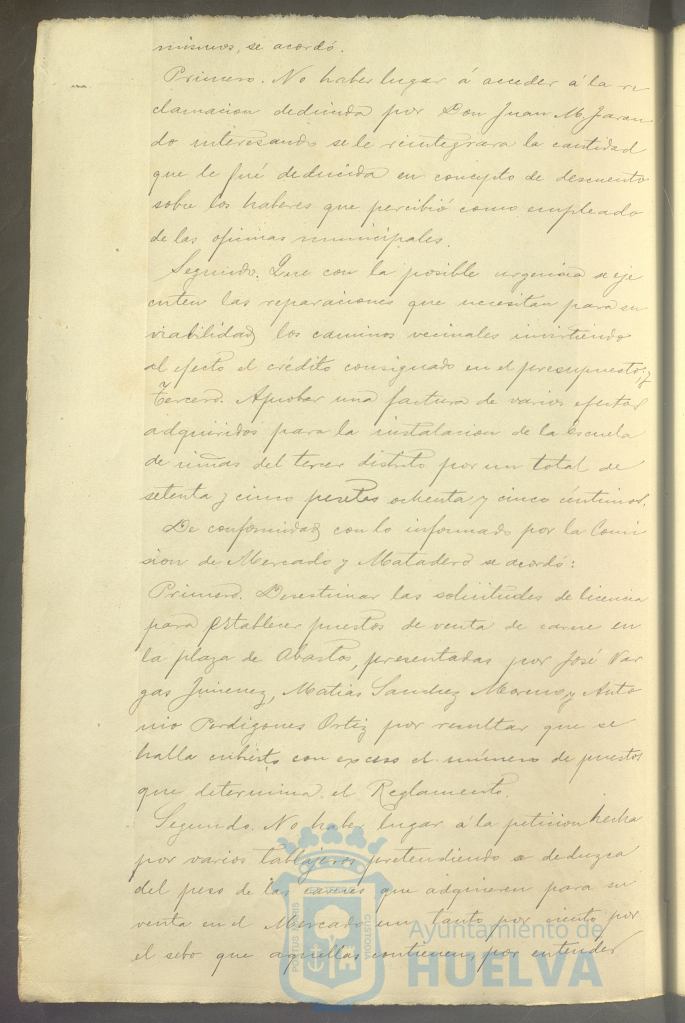 mismos, se acordó.
Primero. No haber lugar á acceder á la re
clamacion deducida por Don Juan M. Jaran
do interesando se le reintegrara la cantidad
que le fué deducida en concepto de descuento
sobre los haberes que percibió como empleado
de las oficinas municipales.
Segundo. Que con la posible urgencia se eje
cuten las reparaciones que necesitan para su
viabilidad los caminos vecinales invirtiendo
al efecto el crédito consignado en el presupuesto; y
Tercero. Aprobar una factura de varios efectos
adquiridos para la instalacion de la escuela
de niñas del tercer distrito por un total de
setenta y cinco pesetas ochenta y cinco céntimos.
De conformidad con lo informado por la Comi
sion de Mercado y Matadero se acordó:
Primero. Desestimar las solicitudes de licencia
para establecer puestos de venta de carne en
la plaza de Abastos, presentadas por José Var
gas Jimenez, Matias Sanchez Moreno y Anto
nio Perdigones Ortiz por resultar que se
halla cubierto con exceso el número de puestos
que determina el Reglamento.
Segundo. No haber lugar á la peticion hecha
por varios tablajeros pretendiendo se deduzca
del peso de las carnes que adquieren para su
venta en el Mercado un tanto por ciento por
el sebo que aquellas contienen, por entender
PORTUS MARIS
CUSTODIA
Ayuntamiento de
HUELVA